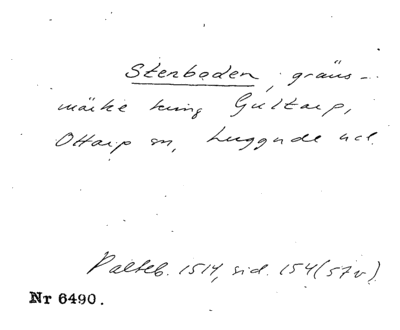 Stenboden, gräns-
märke kring Gultarp,
Ottarp sn, Luggude hd.
Palteb. 1514, sid. 154 (57v)
Nr 6490.